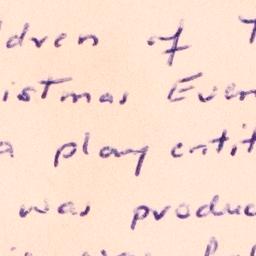 ldren of T
istmas Even
a play entit
was produc